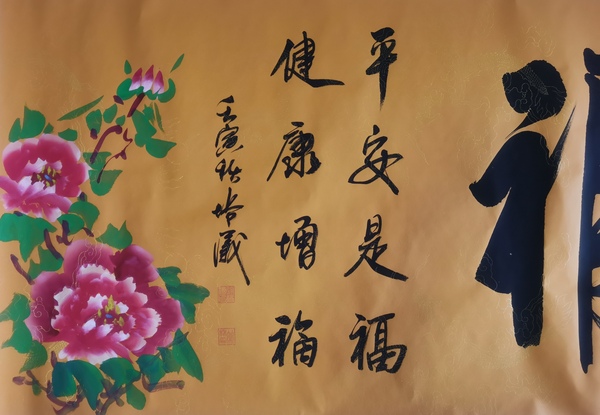 平安是福
健康增福
壬寅